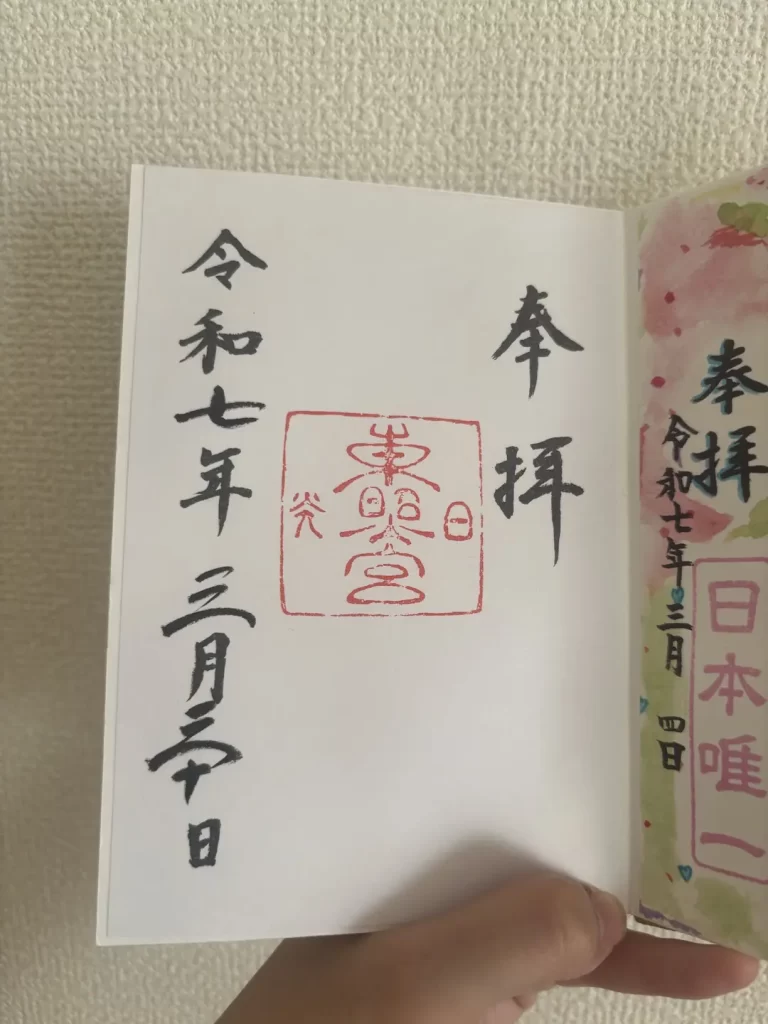 奉拝
日本唯一
令和七年三月四日
奉拝
日光
東照宮
令和七年三月三十日